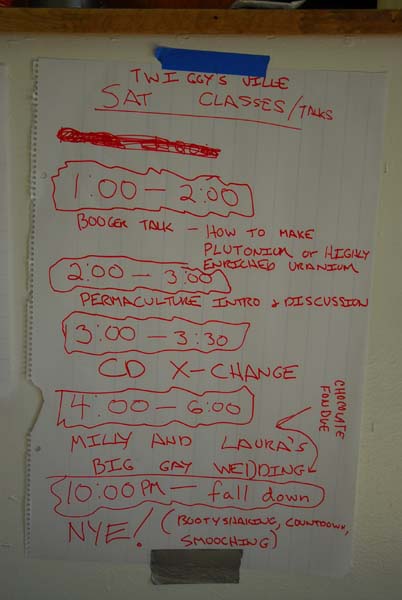 TWIGGY'S VILLE
SAT CLASSES/TALKS
1:00 — 2:00
BOOGER TALK — HOW TO MAKE
PLUTONIUM or HIGHLY
ENRICHED URANIUM
2:00 — 3:00
PERMACULTURE INTRO & DISCUSSION
3:00 — 3:30
CD X-CHANGE
4:00 — 6:00
CHOCOLATE
FONDUE
MILLY AND LAURA'S
BIG GAY WEDDING
10:00 PM — fall down
NYE! (BOOTYSHAKING, COUNTDOWN,
SMOOCHING)